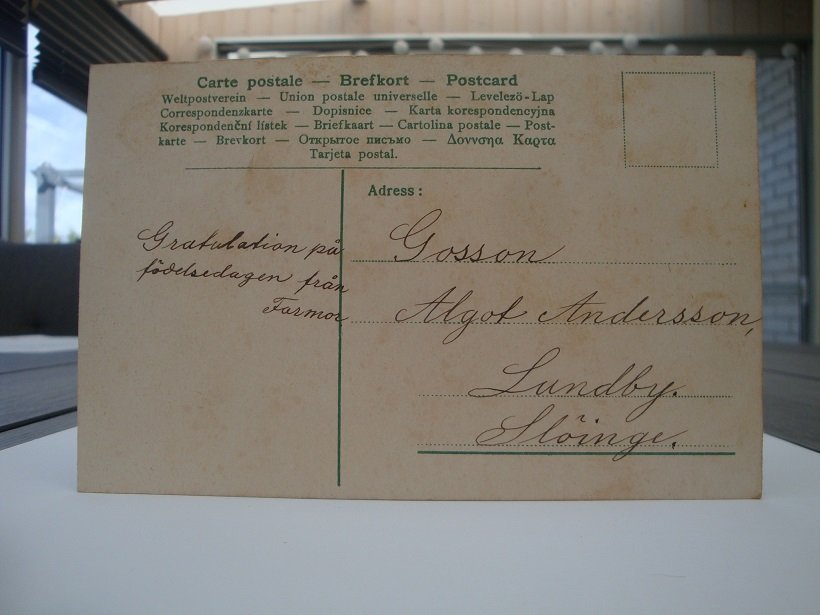 Carte postale — Brefkort — Postcard
Weltpostverein — Union postale universelle — Levelező-Lap
Correspondenzkarte — Dopisnice — Karta korespondencyjna
Korespondenční lístek — Briefkaart — Cartolina postale — Post-
karte — Brevkort — Открытое письмо — Δοννσηα Καρτα
Tarjeta postal.
Adress:
Gratulation på
födelsedagen från
Farmor
Gosson
Algot Andersson,
Lundby.
Slöinge.